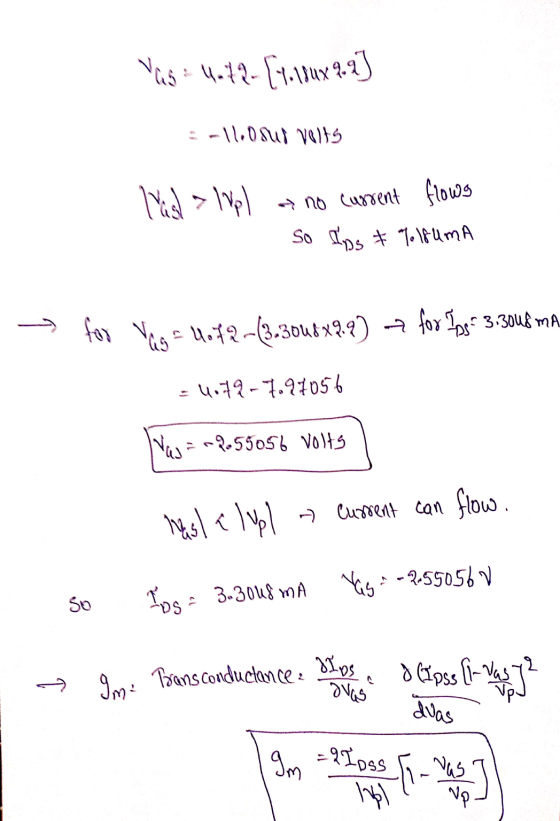 V_GS = 4.72 - [7.184x2.2]
= -11.0848 Volts
|V_GS| > |V_P| → no current flows
So I_DS ≠ 7.184mA
→ for V_GS = 4.72 - (3.3048x2.2) → for I_DS = 3.3048mA
= 4.72 - 7.27056
V_GS = -2.55056 Volts
|V_GS| < |V_P| → Current can flow.
so I_DS = 3.3048 mA V_GS = -2.55056 V
→ g_m = Transconductance = ∂I_DS/∂V_GS = ∂(I_DSS [1 - V_GS/V_P]^2 / dV_GS
g_m = 2I_DSS/|V_P| [1 - V_GS/V_P]